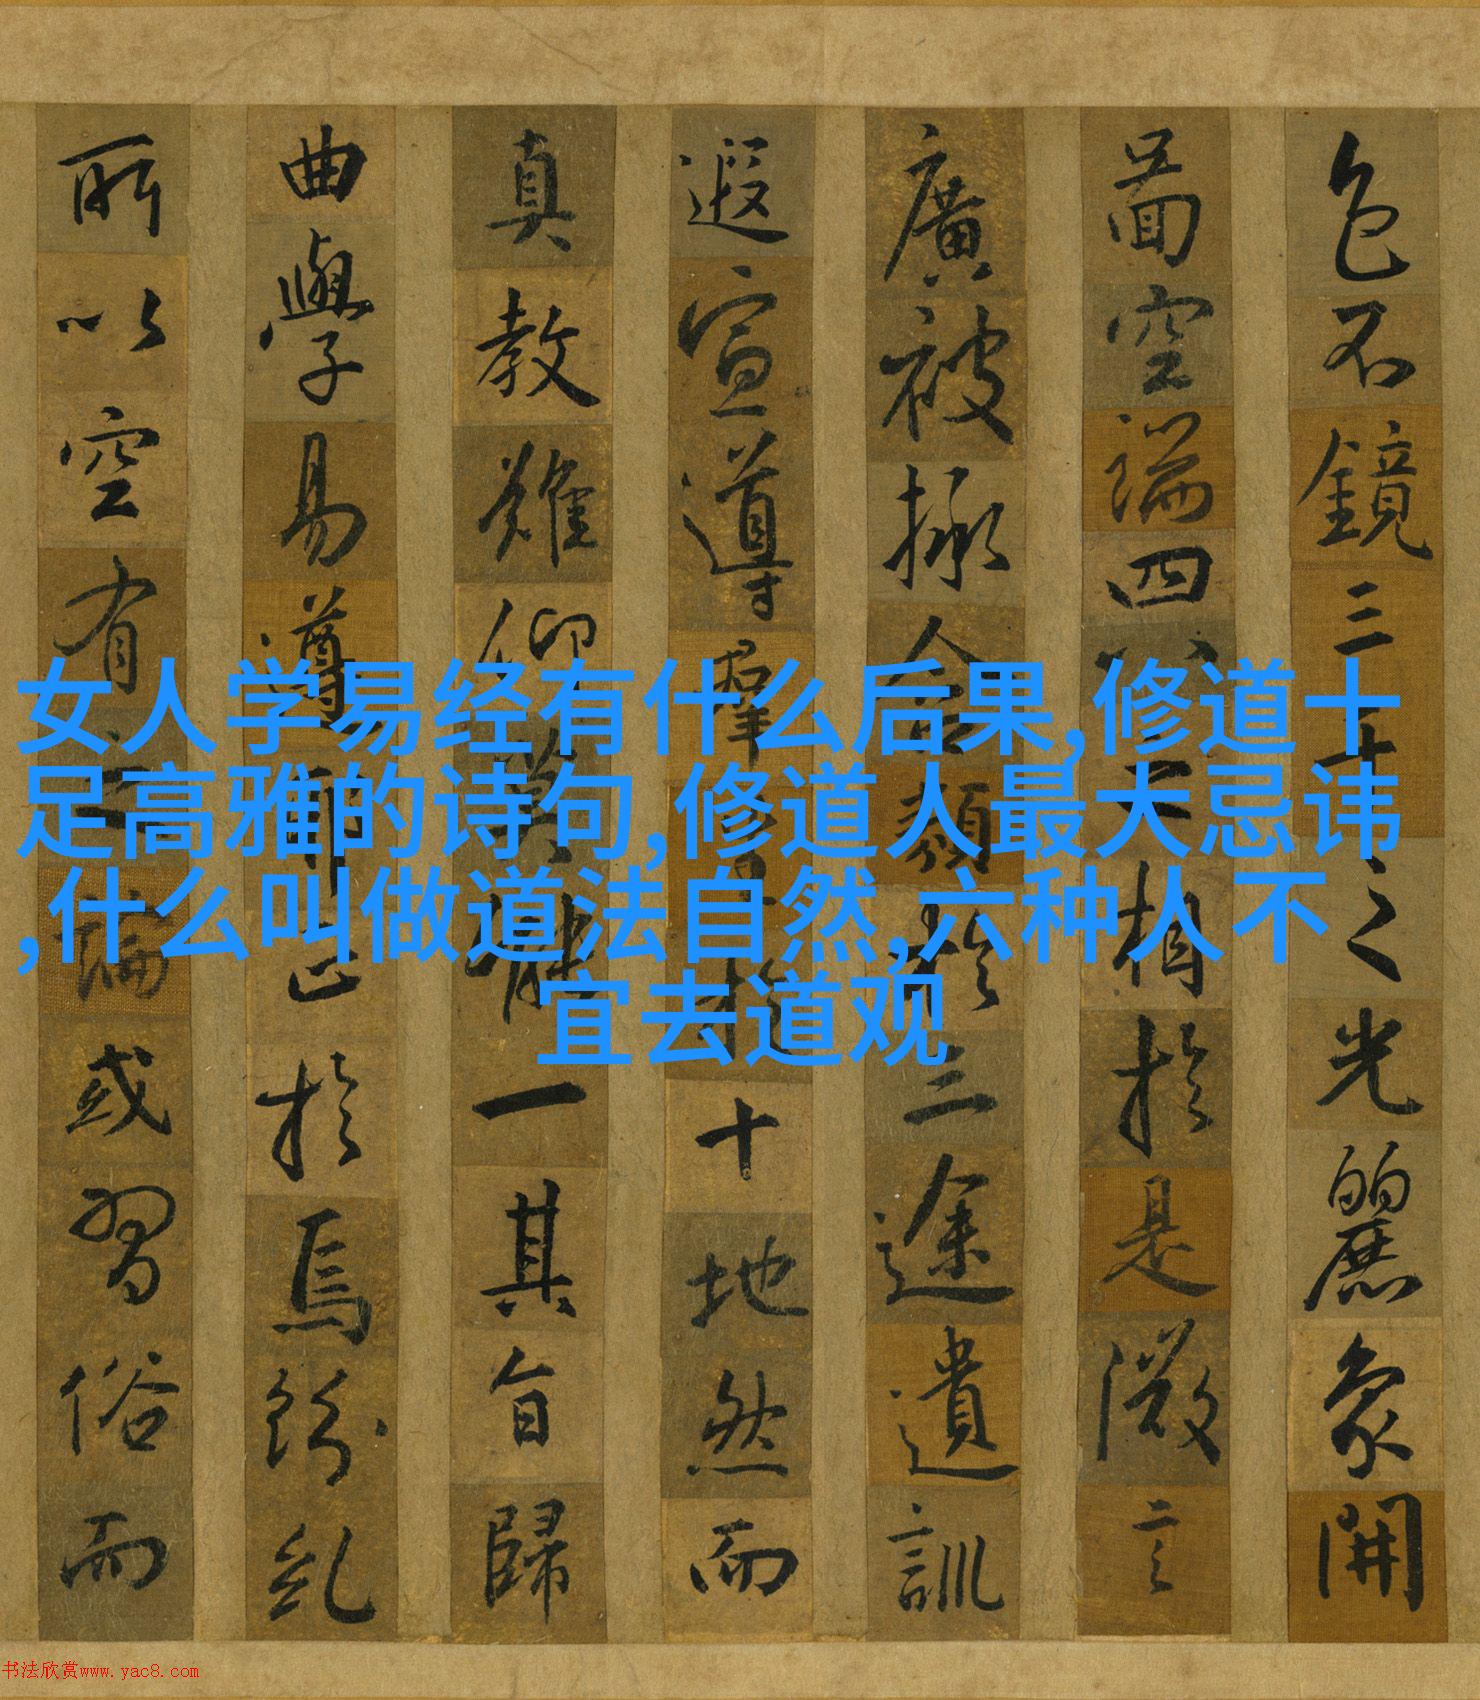 色不鏡三千之光麗象開
啚空端四八之相於是微言
廣被拯含類於三途遺訓
遐宣導羣生於十地然而
真教難仰莫能一其旨歸
曲學易遵邪正於焉紛糺
所以空有之論或習俗而
女人学易经有什么后果,修道十
足高雅的诗句,修道人最大忌讳
,什么叫做道法自然,六种人不
宜去道观
书法欣赏www.yac8.com